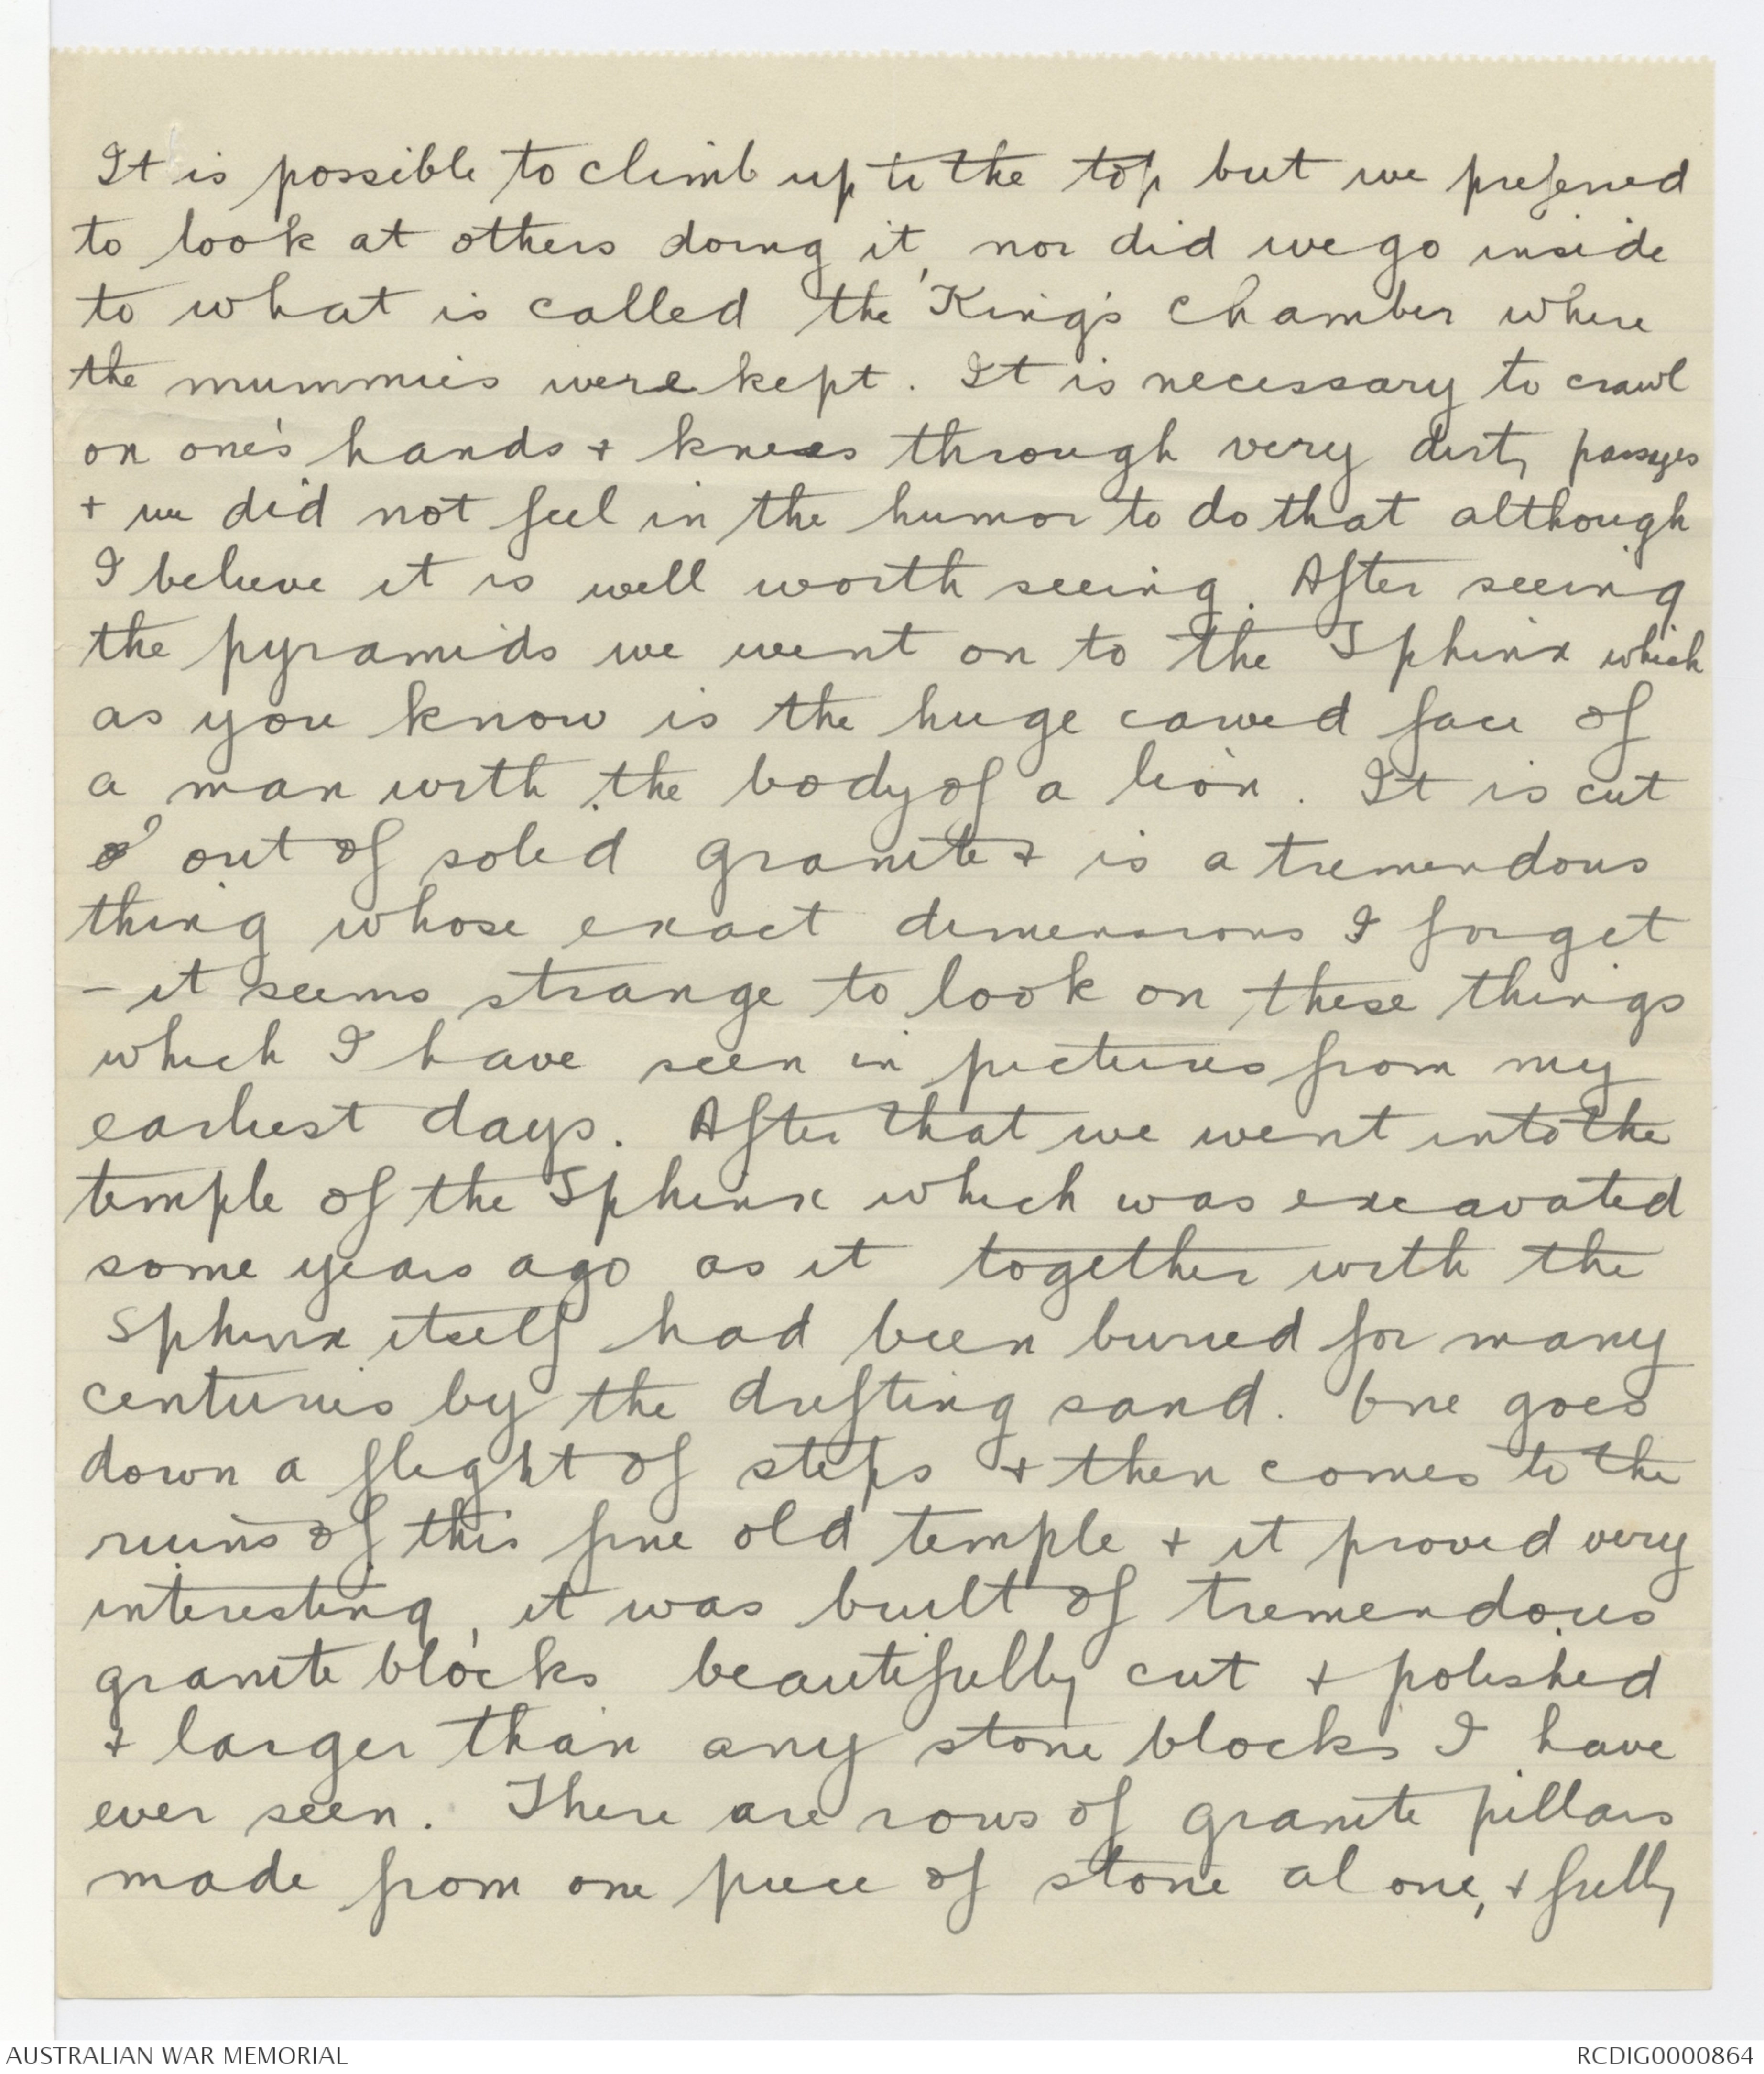 It is possible to climb up to the top but we preferred
to look at others doing it, nor did we go inside
to what is called the King's Chamber where
the mummies were kept. It is necessary to crawl
on one's hands + knees through very dirty passages
+ we did not feel in the humor to do that although
I believe it is well worth seeing. After seeing
the pyramids we went on to the Sphinx which
as you know is the huge carved face of
a man with the body of a lion. It is cut
out of solid granite + is a tremendous
thing whose exact dimensions I forget
- it seems strange to look on these things
which I have seen in pictures from my
earliest days. After that we went into the
temple of the Sphinx which was excavated
some years ago as it together with the
Sphinx itself had been buried for many
centuries by the drifting sand. One goes
down a flight of steps + then comes to the
ruins of this fine old temple + it proved very
interesting, it was built of tremendous
granite blocks beautifully cut + polished
+ larger than any stone blocks I have
ever seen. There are rows of granite pillars
made from one piece of stone alone, + fully
AUSTRALIAN WAR MEMORIAL
RCDIG0000864